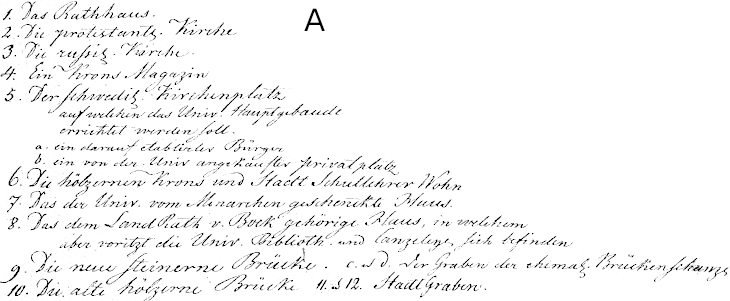 A
1. Das Rathhaus.
2. Die protestantz. Kirche
3. Die russis. Kirche.
4. Ein Krons Magazin
5. Der schwedis. Kirchenplatz
auf welchen das Univ. Hauptgebaude
errichtet werden soll.
a. ein darauf etablirter Bürger
b. ein von der Univ angekaufter privatplatz
6. Die hölzernen Krons und Stadt Schullehrer Wohn
7. Das der Univ. vom Monarchen geschenckte Haus.
8. Das dem LandRath v. Bock gehörige Haus, in welchem
aber die Univ. Biblioth. und Canzeley, sich befinden
9. Die neue steinerne Brücke. c. d. Der Graben der ehemal. Brückenschanze
10. Die alte hölzerne Brücke 11. & 12. StadtGraben.